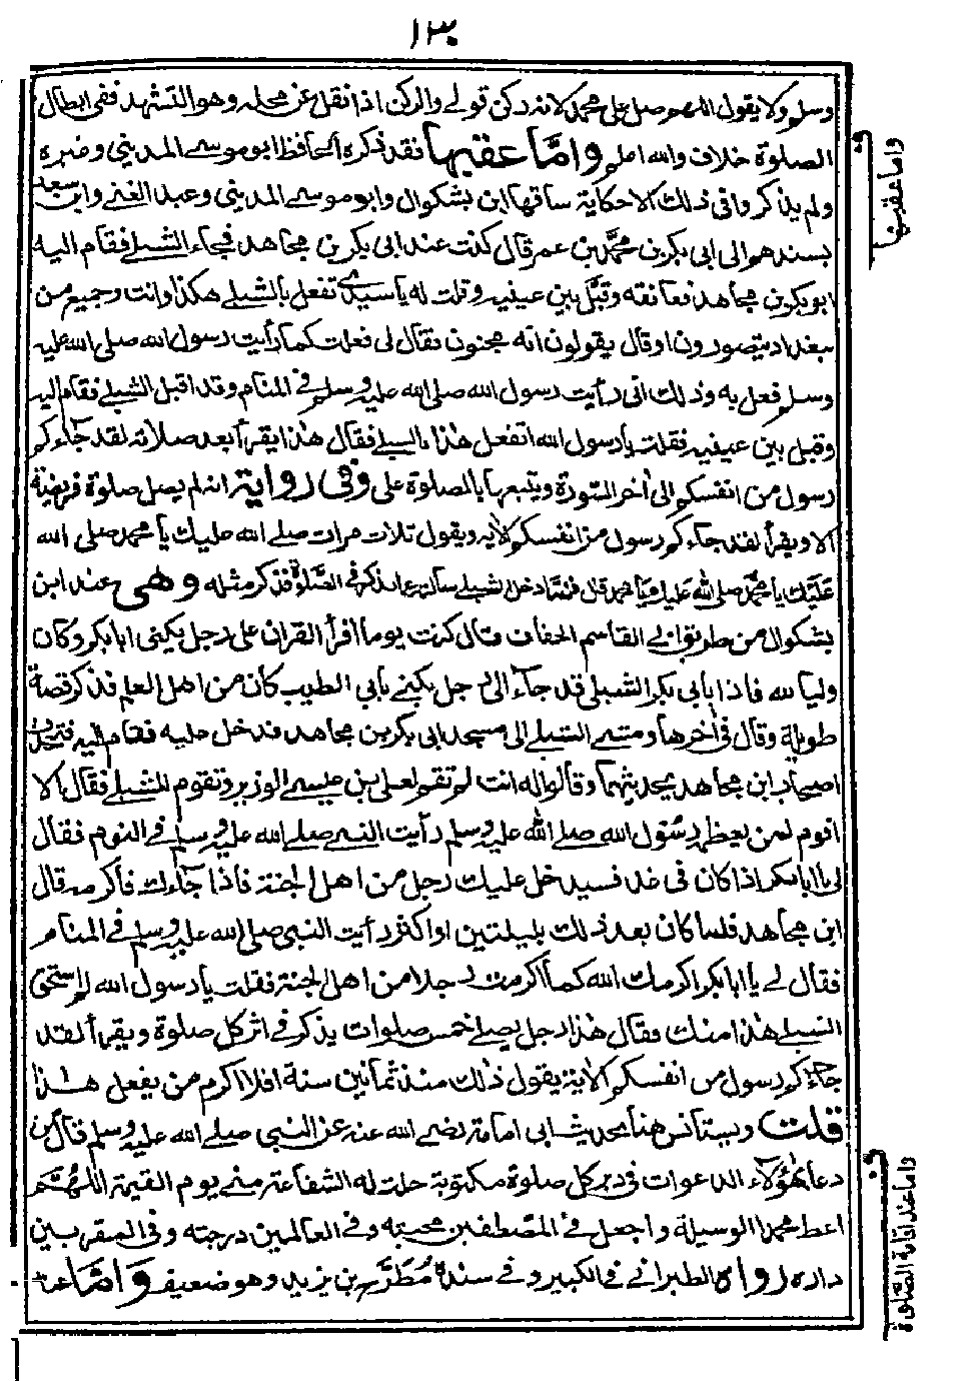 ١٣٠
وسلم ولا يقول اللهم صل على محمد لانه ركن قولي والركن اذا نقل عن محله وهو التشهد ففى ابطال
الصلوة خلاف والله اعلم واما عقبها فقد ذكره الحافظ ابو موسى المديني وغيره
ولم يذكروا فى ذلك الا حكاية ساقها ابن بشكوال وابو موسى المديني وعبد الغني وابن سعد
بسندهم الى ابى بكر بن محمد بن عمر قال كنت عند ابى بكر بن مجاهد فجاء الشبلي فقام اليه
ابو بكر بن مجاهد فعانقه وقبل بين عينيه وقلت له يا سيدى تفعل بالشبلي هكذا وانت وجميع من
ببغداد يتصورون او قال يقولون انه مجنون فقال لى فعلت كما رأيت رسول الله صلى الله عليه
وسلم فعل به وذلك انى رأيت رسول الله صلى الله عليه وسلم في المنام وقد اقبل الشبلي فقام اليه
وقبل بين عينيه فقلت يا رسول الله اتفعل هذا بالشبلي فقال هذا يقرأ بعد صلاته لقد جاءكم
رسول من انفسكم الى أخر السورة ويتبعها بالصلوة على وفى رواية انه لم يصل صلوة فريضة
الا ويقرأ لقد جاءكم رسول من انفسكم الاية ويقول ثلاث مرات صلى الله عليك يا محمد صلى الله
عليك يا محمد صلى الله عليك يا محمد قال فلما دخل الشبلي سألته عما يذكر في الصلوة فذكر مثله وهى عند ابن
بشكوال من طريق ابي القاسم الخفاف قال كنت يوما اقرأ القران على رجل يكنى ابا بكر وكان
وليا لله فاذا بابى بكر الشبلي قد جاء الى رجل يكنى بابى الطيب كان من اهل العلم فذكر قصة
طويلة وقال فى أخرها ومشى الشبلي الى مسجد ابى بكر بن مجاهد فدخل عليه فقام اليه فتحدث
اصحاب ابن مجاهد بحديثهما وقالوا له انت لم تقم لعلى بن عيسى الوزير وتقوم للشبلي فقال الا
اقوم لمن يعظمه رسول الله صلى الله عليه وسلم رأيت النبي صلى الله عليه وسلم في النوم فقال
لى يا ابا بكر اذا كان فى غد فسيدخل عليك رجل من اهل الجنة فاذا جاءك فاكرمه قال
ابن مجاهد فلما كان بعد ذلك بليلتين او اكثر رأيت النبى صلى الله عليه وسلم في المنام
فقال لي يا ابا بكر اكرمك الله كما اكرمت رجلا من اهل الجنة فقلت يا رسول الله بم استحق
الشبلي هذا منك فقال هذا رجل يصلي خمس صلوات يذكرني اثر كل صلوة ويقرأ لقد
جاءكم رسول من انفسكم الاية يقول ذلك منذ ثمانين سنة افلا اكرم من يفعل هذا
قلت ويستأنس هنا بحديث ابى امامة رضى الله عنه عن النبى صلى الله عليه وسلم قال من
دعا بهؤلاء الدعوات فى دبر كل صلوة مكتوبة حلت له الشفاعة مني يوم القيمة اللهم
اعط محمدا الوسيلة واجعل في المصطفين محبته وفي العالمين درجته وفى المقربين
داره رواه الطبراني في الكبير وفي سنده مطرح بن يزيد وهو ضعيف واما عند
واما عقبها
واما عند اقامة الصلوة